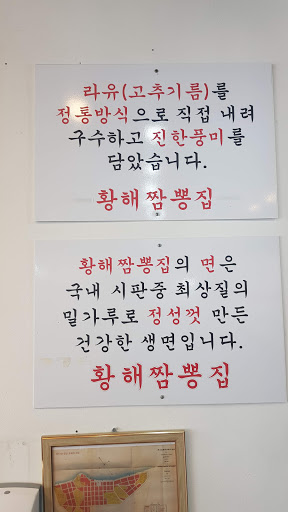 라유(고추기름)를
정통방식으로 직접 내려
구수하고 진한풍미를
담았습니다.
황해짬뽕집
황해짬뽕집의 면은
국내 시판중 최상질의
밀가루로 정성껏 만든
건강한 생면입니다.
황해짬뽕집